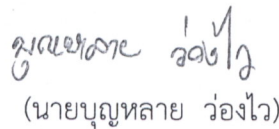 บุญหลาย ว่องไว
(นายบุญหลาย ว่องไว)